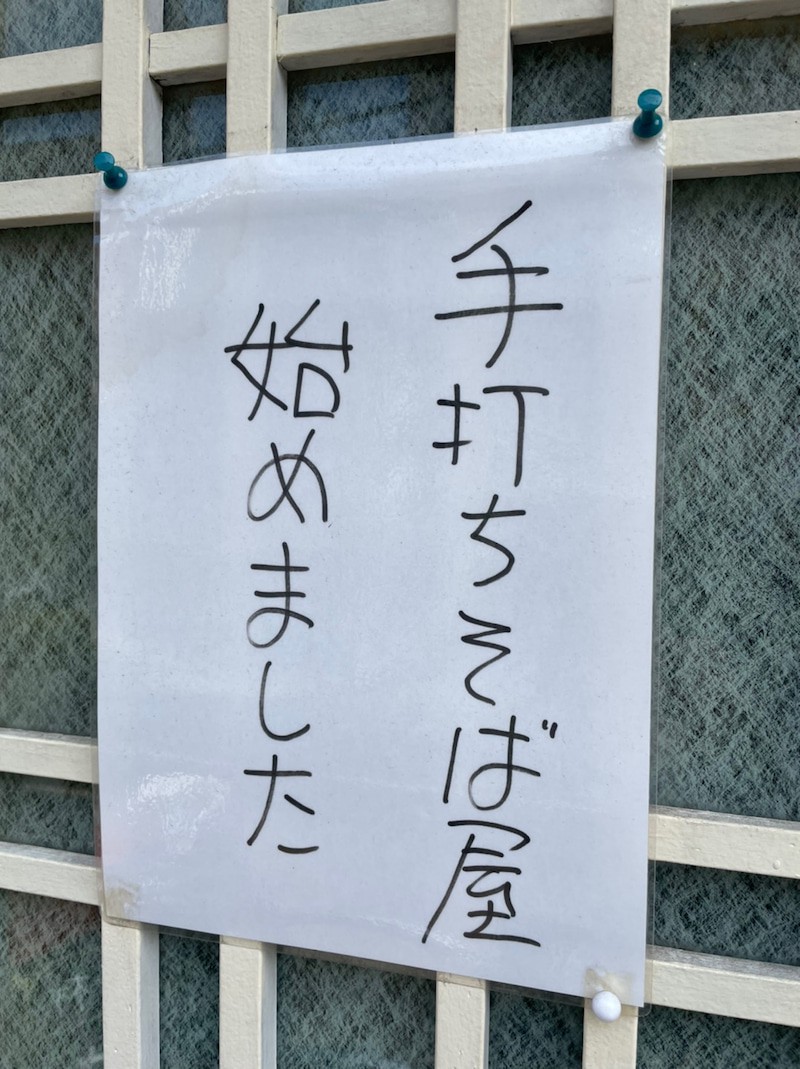 手打ちそば屋
始めました